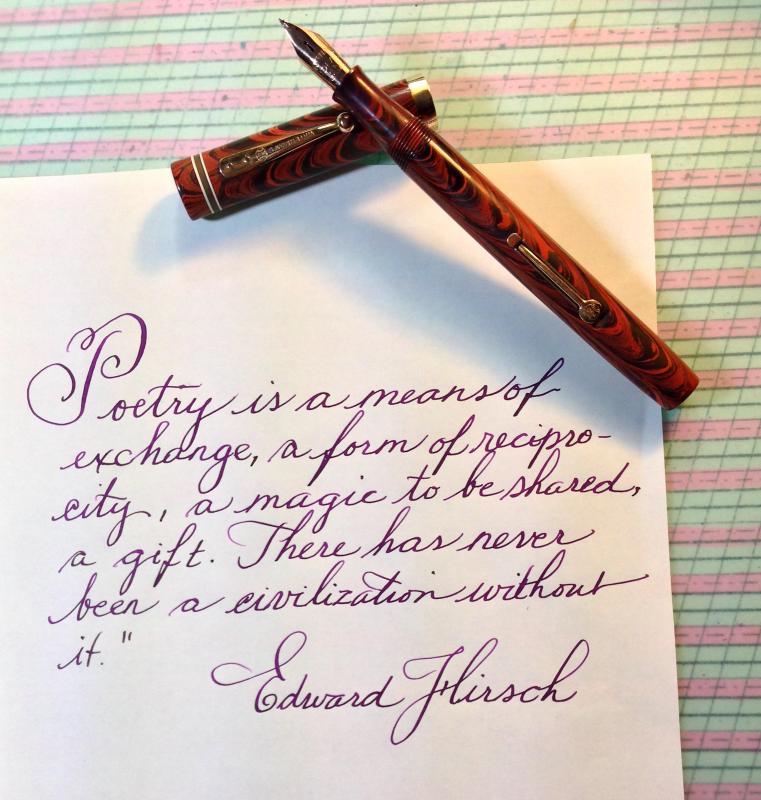 Poetry is a means of
exchange, a form of recipro-
city, a magic to be shared,
a gift. There has never
been a civilization without
it."
Edward Hirsch